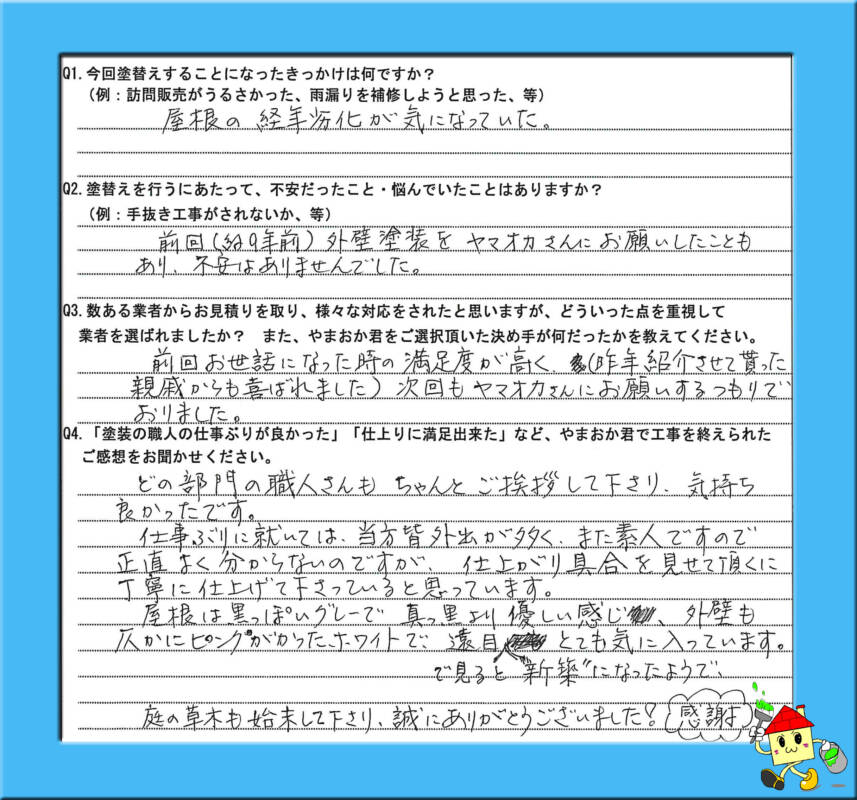 Q1. 今回塗替えすることになったきっかけは何ですか？
（例：訪問販売がうるさかった、雨漏りを補修しようと思った、等）
屋根の経年劣化が気になっていた。
Q2. 塗替えを行うにあたって、不安だったこと・悩んでいたことはありますか？
（例：手抜き工事がされないか、等）
前回（約9年前）外壁塗装をヤマオカさんにお願いしたことも
あり、不安はありませんでした。
Q3. 数ある業者からお見積りを取り、様々な対応をされたと思いますが、どういった点を重視して
業者を選ばれましたか？　また、やまおか君をご選択頂いた決め手が何だったかを教えてください。
前回お世話になった時の満足度が高く、（昨年紹介させて貰った
親戚からも喜ばれました）次回もヤマオカさんにお願いするつもりで
おりました。
Q4. 「塗装の職人の仕事ぶりが良かった」「仕上りに満足出来た」など、やまおか君で工事を終えられた
ご感想をお聞かせください。
どの部門の職人さんもちゃんとご挨拶して下さり、気持ち
良かったです。
仕事ぶりに就いては、当方皆外出が多く、また素人ですので
正直よく分からないのですが、仕上がり具合を見せて頂くに
丁寧に仕上げて下さっていると思っています。
屋根は黒っぽいグレーで真っ黒より優しい感じ、外壁も
仄かにピンクがかったホワイトで、遠目とても気に入っています。
で見ると"新築"になったようで、
庭の草木も始末して下さり、誠にありがとうございました！感謝す